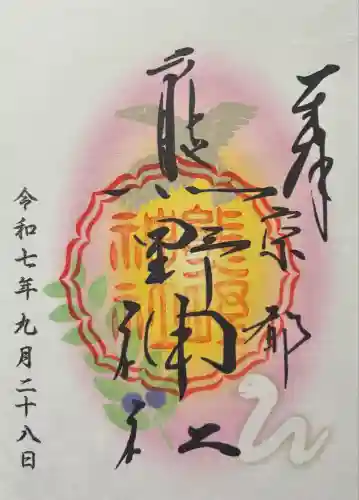 奉
京都
熊野神社
熊野
神社
令和七年九月二十八日